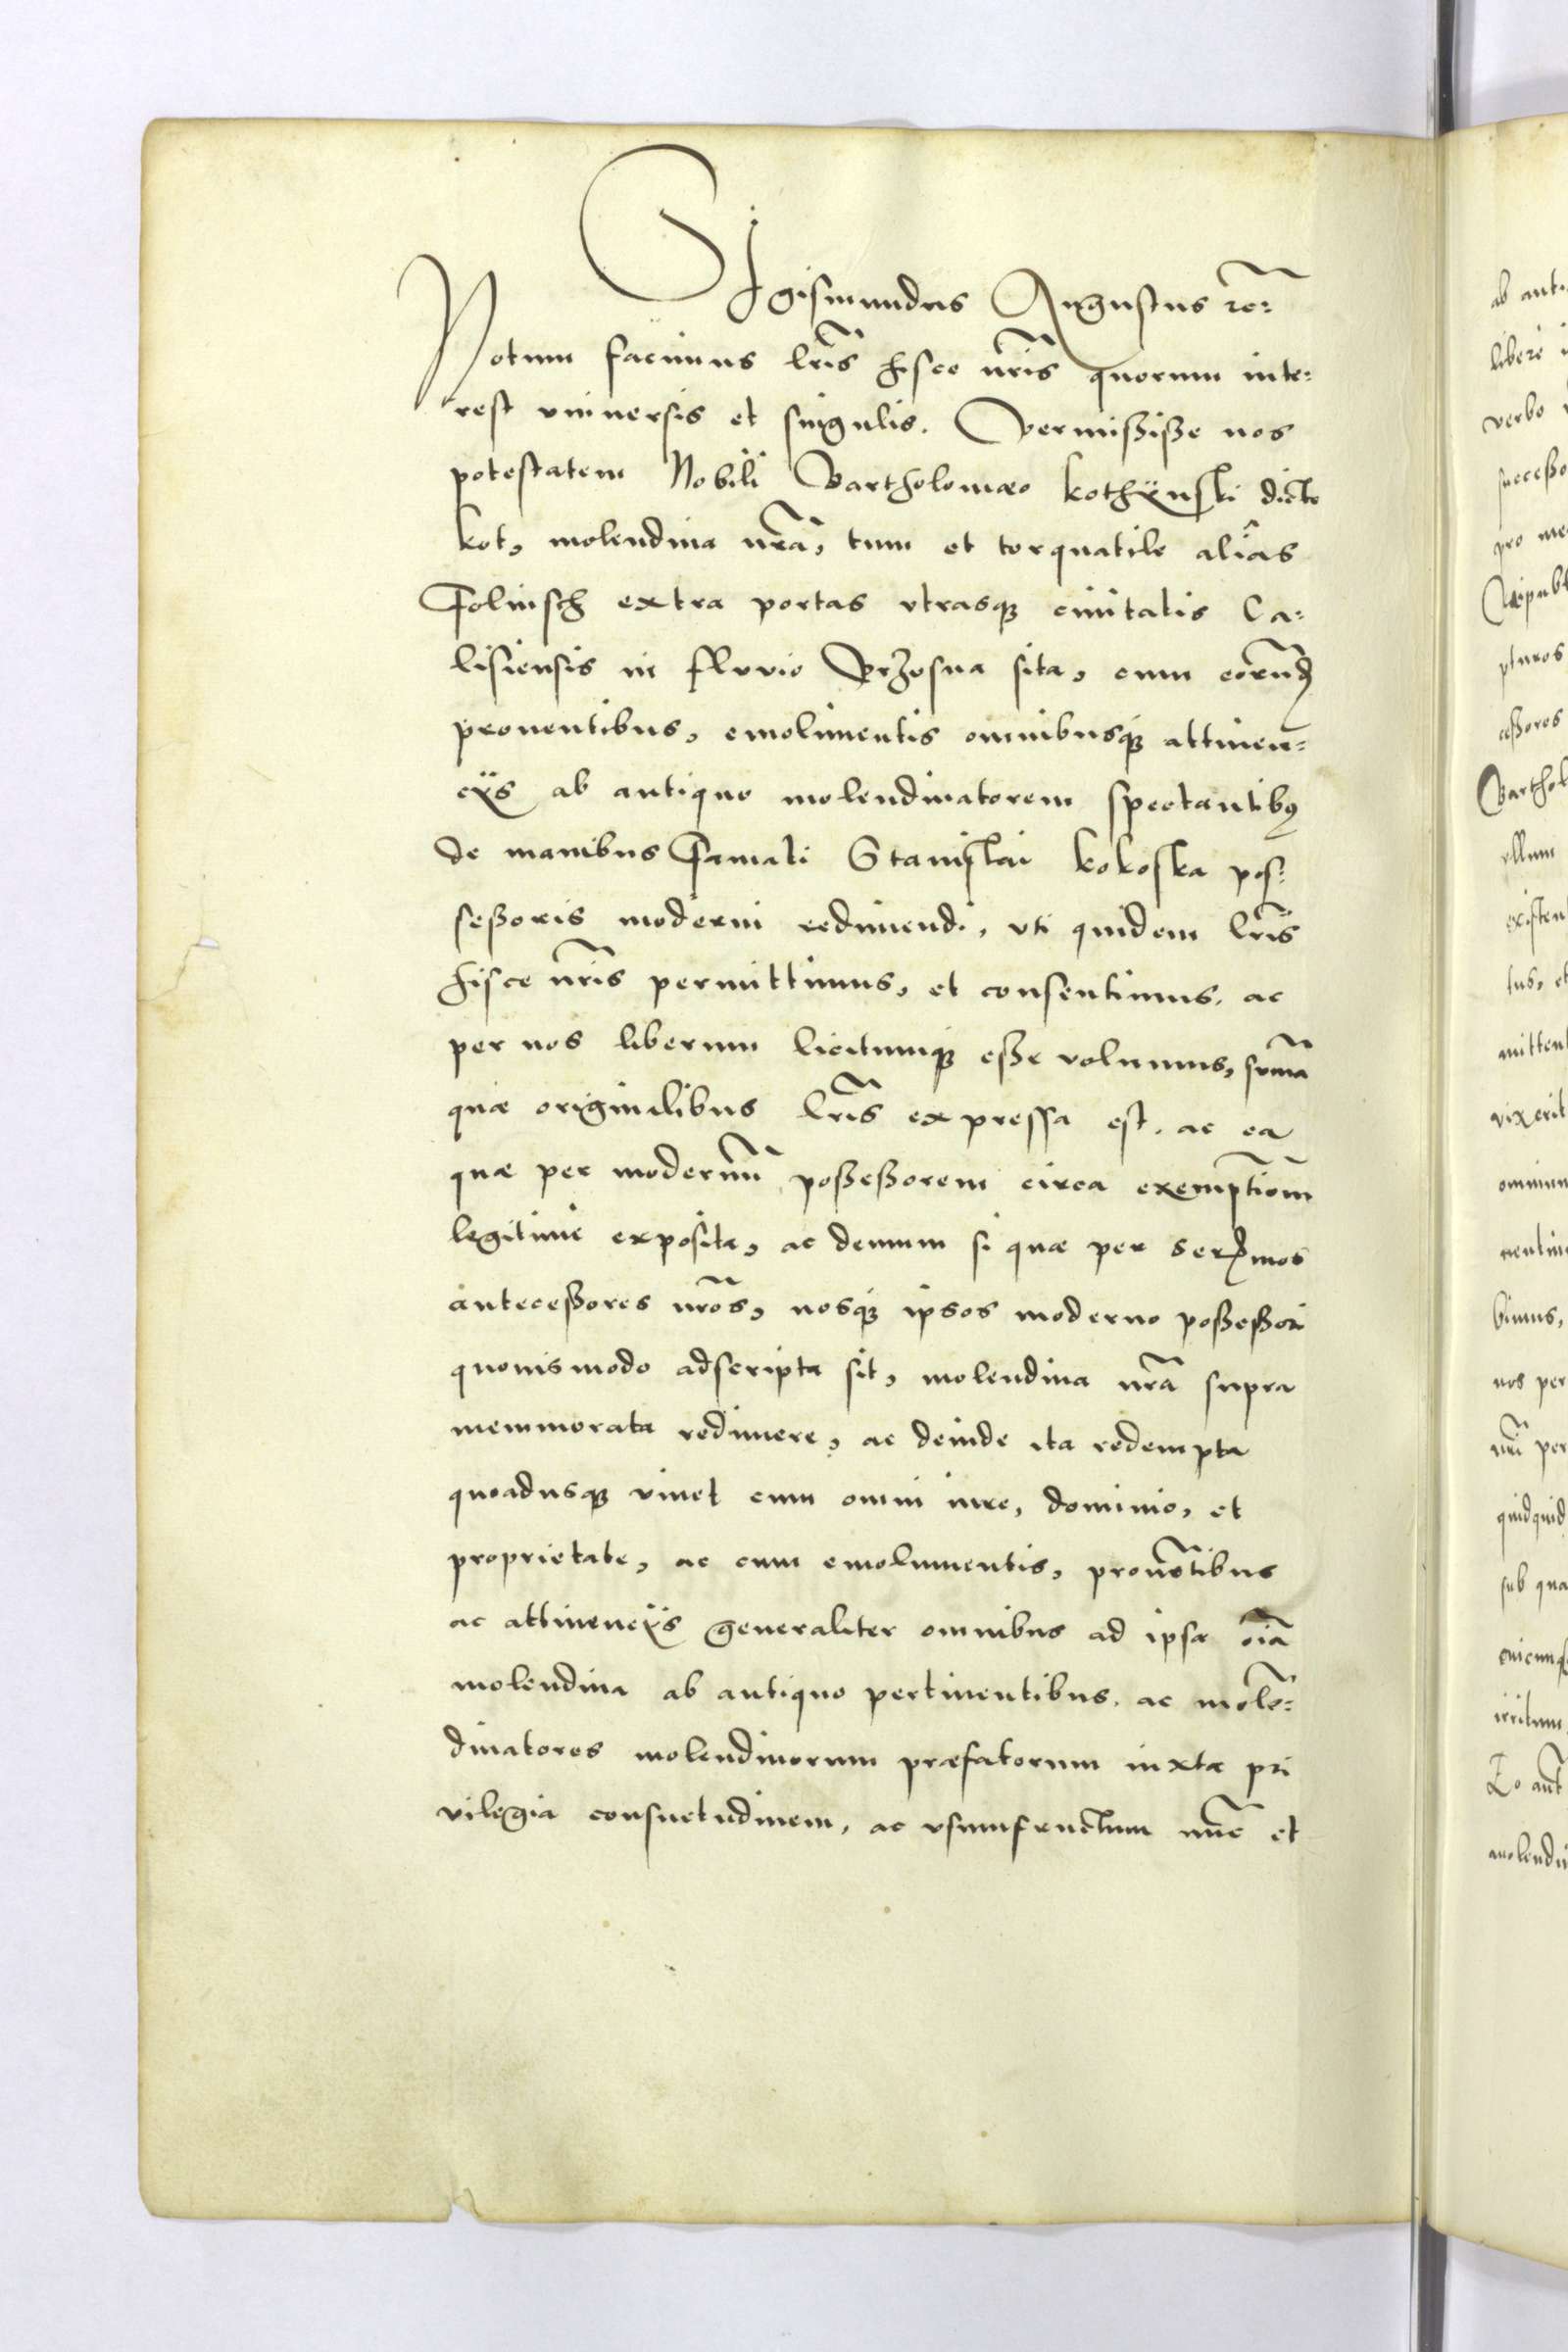 Sigismundus Augustus rc̃:
Notum facimus lr̃is hisce nr̃is quorum inte:
rest vniuersis et singulis. Permißiße nos
potestatem Nobili Bartholomæo Kothÿnski dicto
kot, molendina nr̃a, tum et torquatile aliâs
Folusch extra portas vtrasqȝ ciuitatis Ca:
lisiensis in fluvio Brzosna sita, cum eorund̃
prouentibus, emolimentis omnibusqȝ attinen:
cÿs ab antiquo molendinatorem spectantibꝰ
de manibus Famati Stanislai kokoska pos:
seßoris moderni redimendi, vti quidem lr̃is
hisce nr̃is permittimus, et consentimus, ac
per nos liberum licitumqȝ eße volumus, sum̃a
quæ originalibus lr̃is expressa est, ac ea
quæ per modernũ poßeßorem circa exemptiom̃
legitime exposita, ac demum si quæ per Serd̃mos
anteceßores nr̃os, nosqȝ ipsos moderno poßeßori
quouismodo adscripta sit, molendina nr̃a supra
memmorata redimere, ac deinde ita redempta
quoadusqȝ viuet cum omni iure, dominio, et
proprietate, ac cum emolumentis, prouẽtibus
ac attinencÿs generaliter omnibus ad ipsa oĩa
molendina ab antiquo pertinentibus, ac molẽ:
dinatores molendinorum præfatorum iuxta pri
vilegia consuetudinem, ac vsumfructum nũc et
ab anti
libere
verbo
succeßo
pro me
pturos
ceßores
Barthol
vllum
existen
tus, et
mitten
vixerit
omnium
bimus,
nos per
nr̃i per
quidquid
sub qua
irritum
molendi